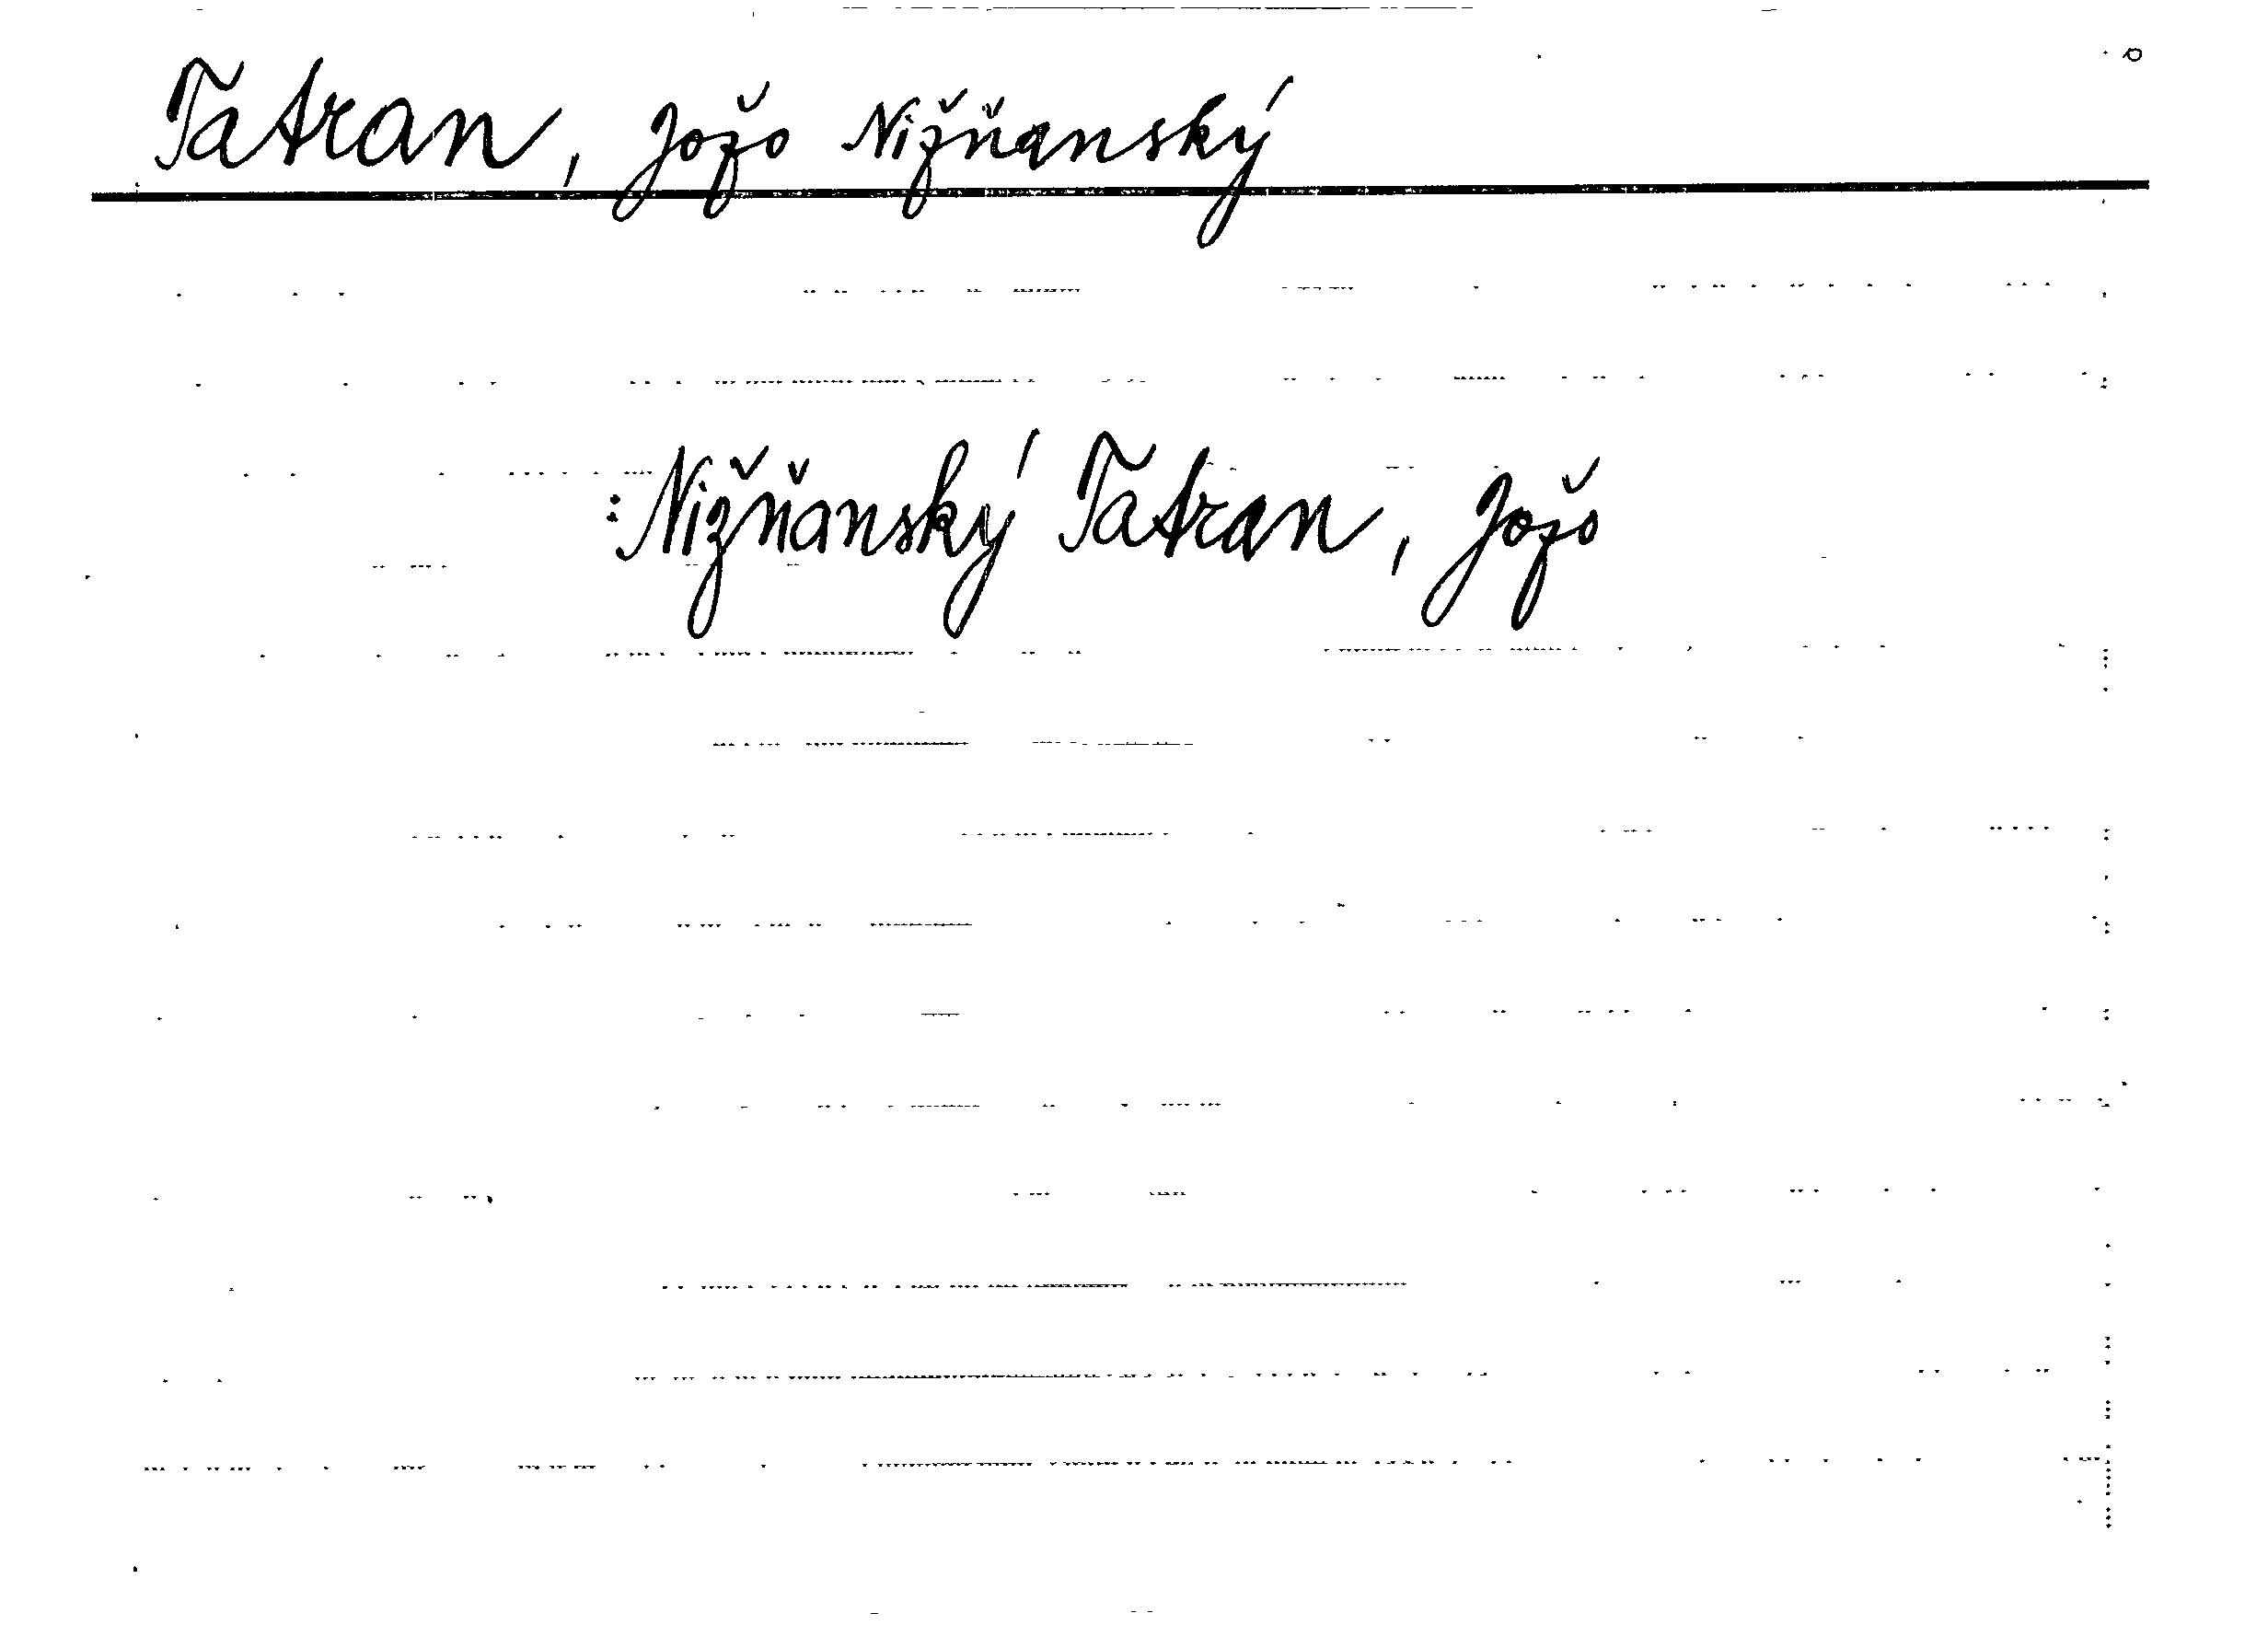 Tatran, Jožo Nižňanský
: Nižňanský Tatran, Jožo